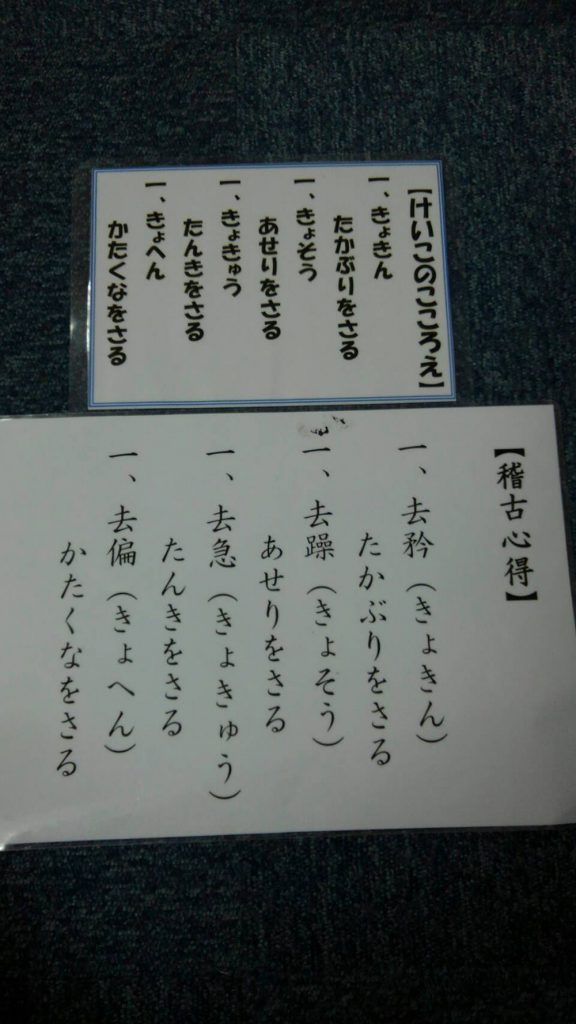 【けいこのこころえ】
一、きょきん
たかぶりをさる
一、きょそう
あせりをさる
一、きょきゅう
たんきをさる
一、きょへん
かたくなをさる
【稽古心得】
一、去矜（きょきん）
たかぶりをさる
一、去躁（きょそう）
あせりをさる
一、去急（きょきゅう）
たんきをさる
一、去偏（きょへん）
かたくなをさる